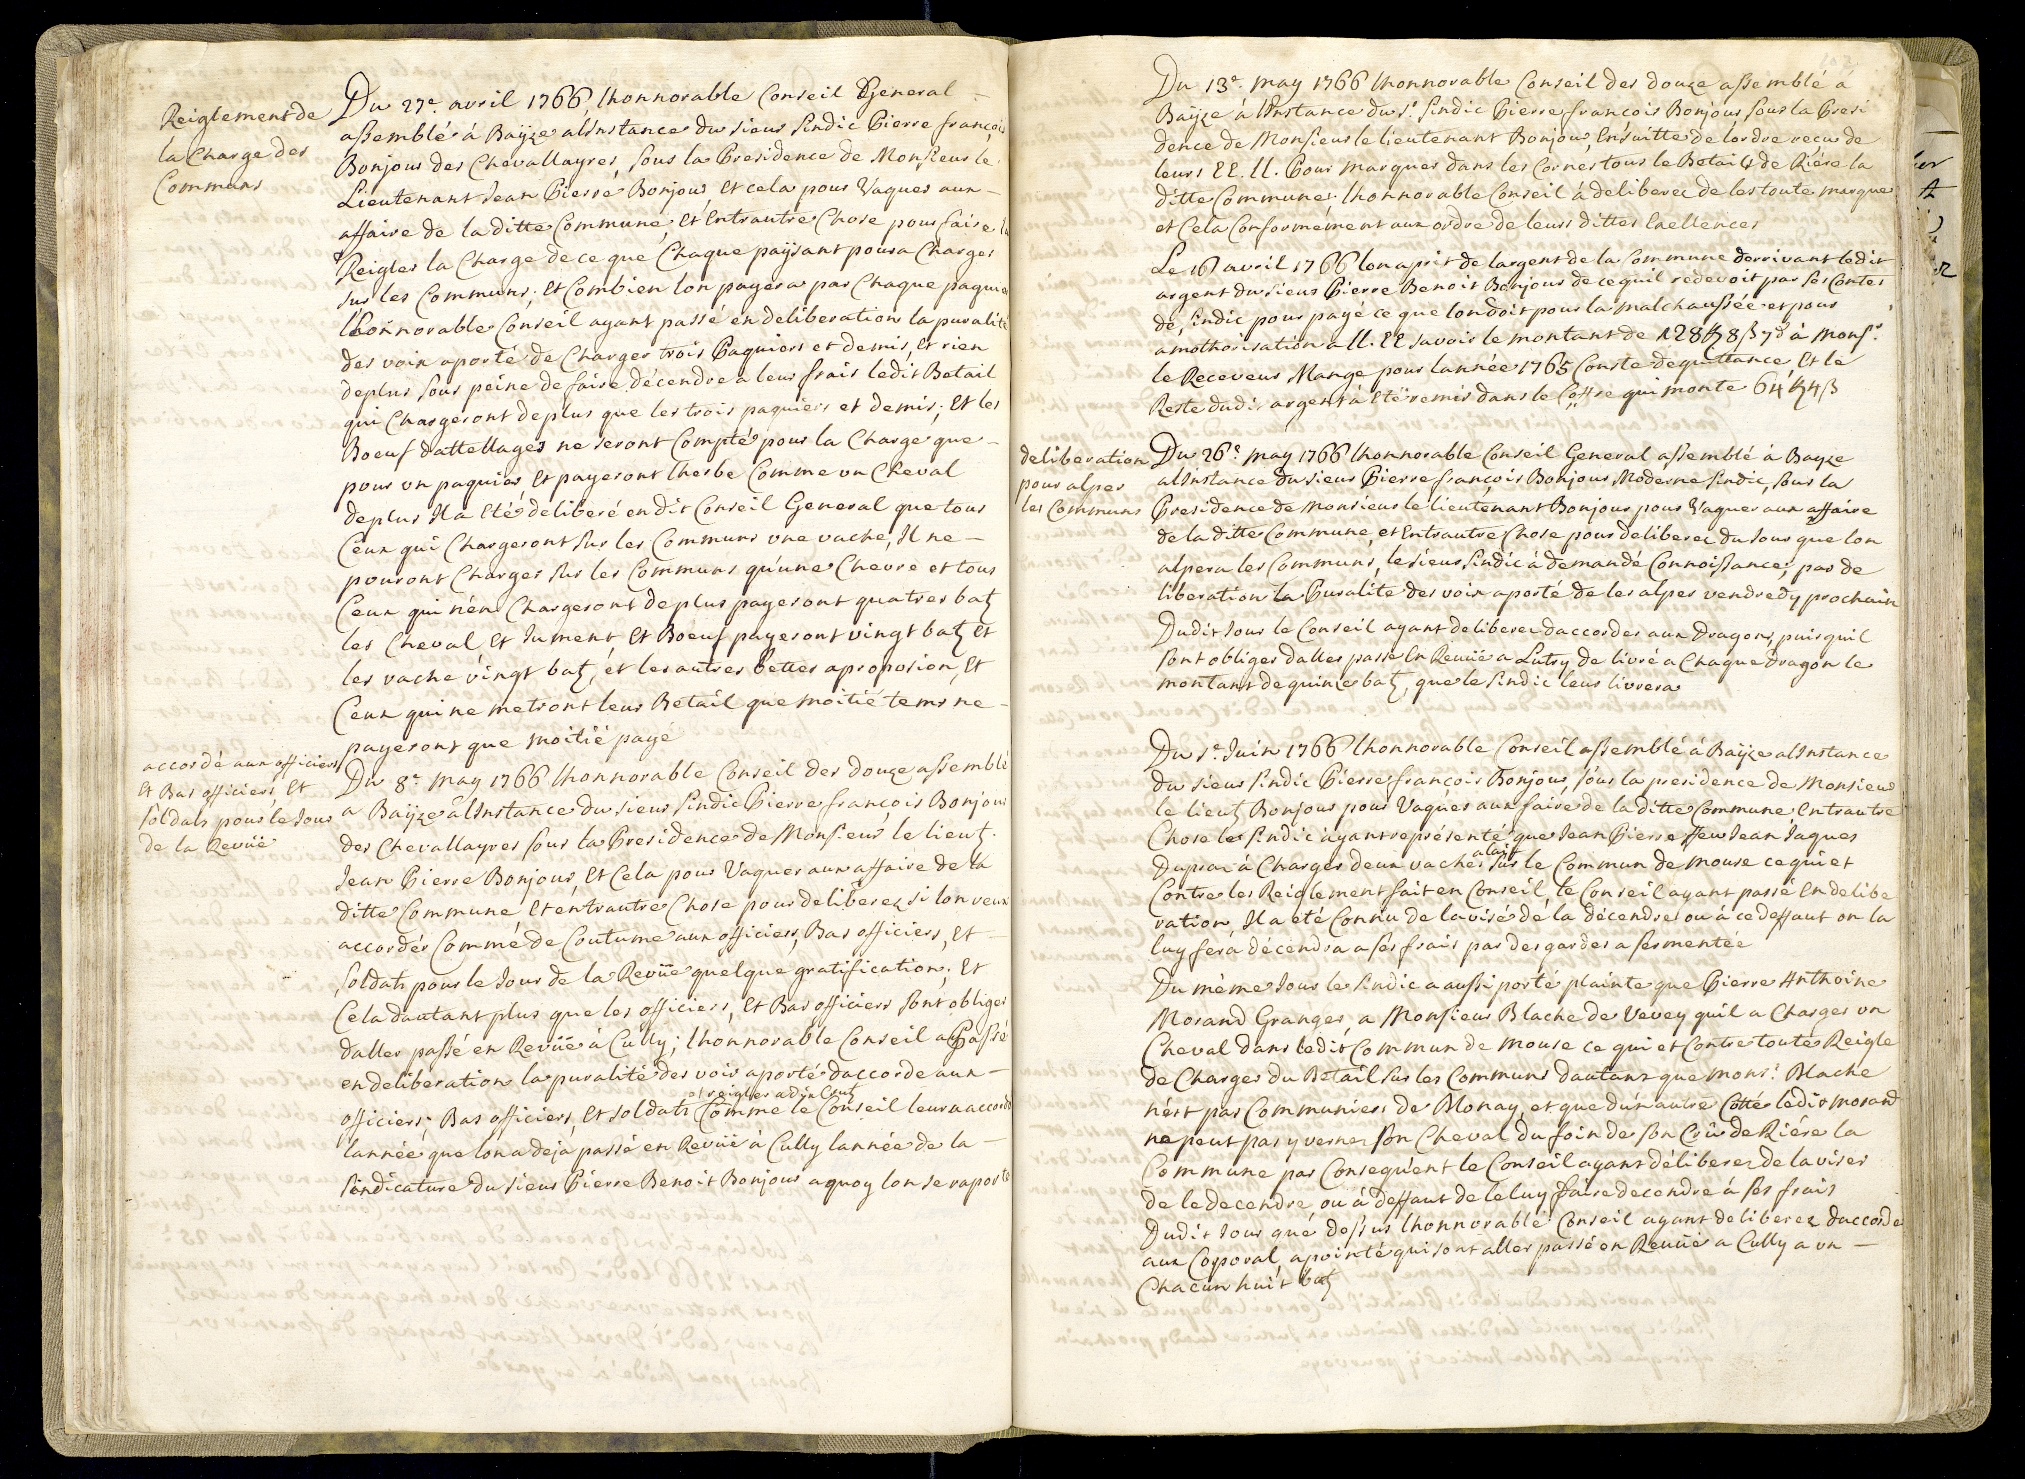 Reiglement de
la Charge des
Communs
Du 27e avril 1766 lhonnorable Conseil General
assemblé à Bayze alinstance du sieur sindic Pierre françois
Bonjour des Chevallayres, sous la Presidence de Monsieur le
Lieutenant Jean Pierre Bonjour Et cela pour Vaquer aux
affaire de la ditte Commune, Et Entrautre Chose pour faire
Reigler la Charge de ce que Chaque paÿsant poura Charger
sur les Communs, Et Combien lon payera par Chaque paquier
lhonnorable Conseil ayant passé en deliberation la puralité
des voix aporté de Charger trois Paquiers et demis, Et rien
deplus sous peine de faire décendre a leur frais ledit Betail
qui Chargeront deplus que les trois paquiers et demis; Et les
Boeuf dattellages ne seront Compté pour la Charge que
pour un paquier, Et payeront lherbe Comme un Cheval
deplus Il a Eté deliberé en dit Conseil General que tous
Ceux qui Chargeront sur les Communs une vache, Il ne
pouront Charger sur les Communs qu'une Chevre et tous
Ceux qui n'en Chargeront deplus payeront quatres batz
les Cheval Et Jument Et Boeuf payeront vingt batz Et
les vache vingt batz, et les autres bettes a proposion, Et
Ceux qui ne metront leur Betail que moitié tems ne
payeront que moitié payé
accordé aux officiers
Et Bas officiers, Et
soldats pour le Jour
de la Revüe
Du 8e may 1766 lhonnorable Conseil des douze assemblé
a Baÿze alinstance du sieur sindic Pierre françois Bonjour
des Chevallayres sous la Presidence de Monsieur le lieutz
Jean Pierre Bonjour, Et Cela pour Vaquer aux affaire de la
ditte Commune Et entrautre Chose pour deliberez si lon veux
accorder Comme de Coutume aux officiers, Bas officiers, Et
soldats pour le Jour de la Revüe quelque gratification; Et
Cela dautant plus que les officiers, Et Bas officiers sont obliger
daller passé en Revüe à Cully; lhonnorable Conseil a Passé
en deliberation la puralité des voix aporté daccorde aux
officiers; Bas officiers, Et soldats Comme le Conseil leur a accordé
lannée que lon a deja passé en Revüe à Cully lannée de la
sindicature du sieur Pierre Benoit Bonjour a quoy lon se raporte
Du 13e may 1766 lhonnorable Conseil des douze assemblé à
Baÿze à linstance du Sr sindic Pierre françois Bonjour sous la Presi
dence de Monsieur le lieutenant Bonjour, Ensuitte de lordre reçus de
leurs EE. ll. Pour marquer dans les Cornes tous le Betail de Riére la
ditte Commune; lhonnorable Conseil à deliberez de les toute marque
et Cela Conformement aux ordre de leurs dittes Exellences
Le 16 avril 1766 lon a prit de largent de la Commune derrivant ledit
argent du sieur Pierre Benoit Bonjour de ce quil redevoit par ses Contes
de sindic pour payé ce que lon doit pour la malchaussée et pour
amothorisation a ll. EE savoir le montant de 128 8 ß 7 d à Monsr
le Receveur Mange pour lannée 1765 Conste de quittance, Et le
Reste dudit argent à Eté remis dans le Coffre qui monte 64 4 ß
deliberation
pour alper
les Communs
Du 26e may 1766 lhonnorable Conseil General assemblé à Bayze
alinstance du sieur Pierre françois Bonjour Moderne sindic, sous la
Presidence de Monsieur le lieutenant Bonjour pour Vaquer aux affaire
de la ditte Commune, et Entrautre Chose pour deliberez du Jour que lon
alpera les Communs, le sieur sindic à demandé Connoissance; par de
liberation la Puralité des voix aporté de les alper vendredy prochain
Dudit Jour le Conseil ayant deliberez daccorder aux Dragons, puisquil
sont obliger daller passé En Revüe a Lutry, de livré a Chaque dragon le
montant de quinze batz, que le sindic leur livrera
Du 1e Juin 1766 lhonnorable Conseil assemblé à Baÿze alinstance
du sieur sindic Pierre françois Bonjour, sous la presidence de Monsieur
le lieutz Bonjour pour Vaquer aux faire de la ditte Commune Entrautre
Chose le sindic ayant représenté que Jean Pierre ffeu Jean Jaques
Duprai à Charger deux vaches alait sur le Commun de mouse ce qui et
Contre les Reiglement fait en Conseil, le Conseil ayant passé En delibe
ration, Il a eté Connu de lavisé dé la décendre ou à ce deffaut on la
luy fera décendra a ses frais par des gardes a sermentée
Du même Jour le sindic a aussi porté plainte que Pierre Anthoine
Morand Granger, a Monsieur Blache de Vevey quil a Charger un
Cheval dans ledit Commun de mouse ce qui et Contre toute Reigle
de Charger du Betail sur les Communs dautant que monsr Blache
nést par Communiers de Blonay, et que d'un autre Cotté ledit Morand
ne peut pas yverner son Cheval du foin de son Crû de Riére la
Commune par Consequient le Conseil ayant déliberez de laviser
de le decendre, ou à deffaut de le luy faire decendre à ses frais
Dudit Jour que dessus lhonnorable Conseil ayant deliberez daccorde
aux Corporal, apointé qui sont aller passé en Revüe a Cully a un
Chacun huit batz